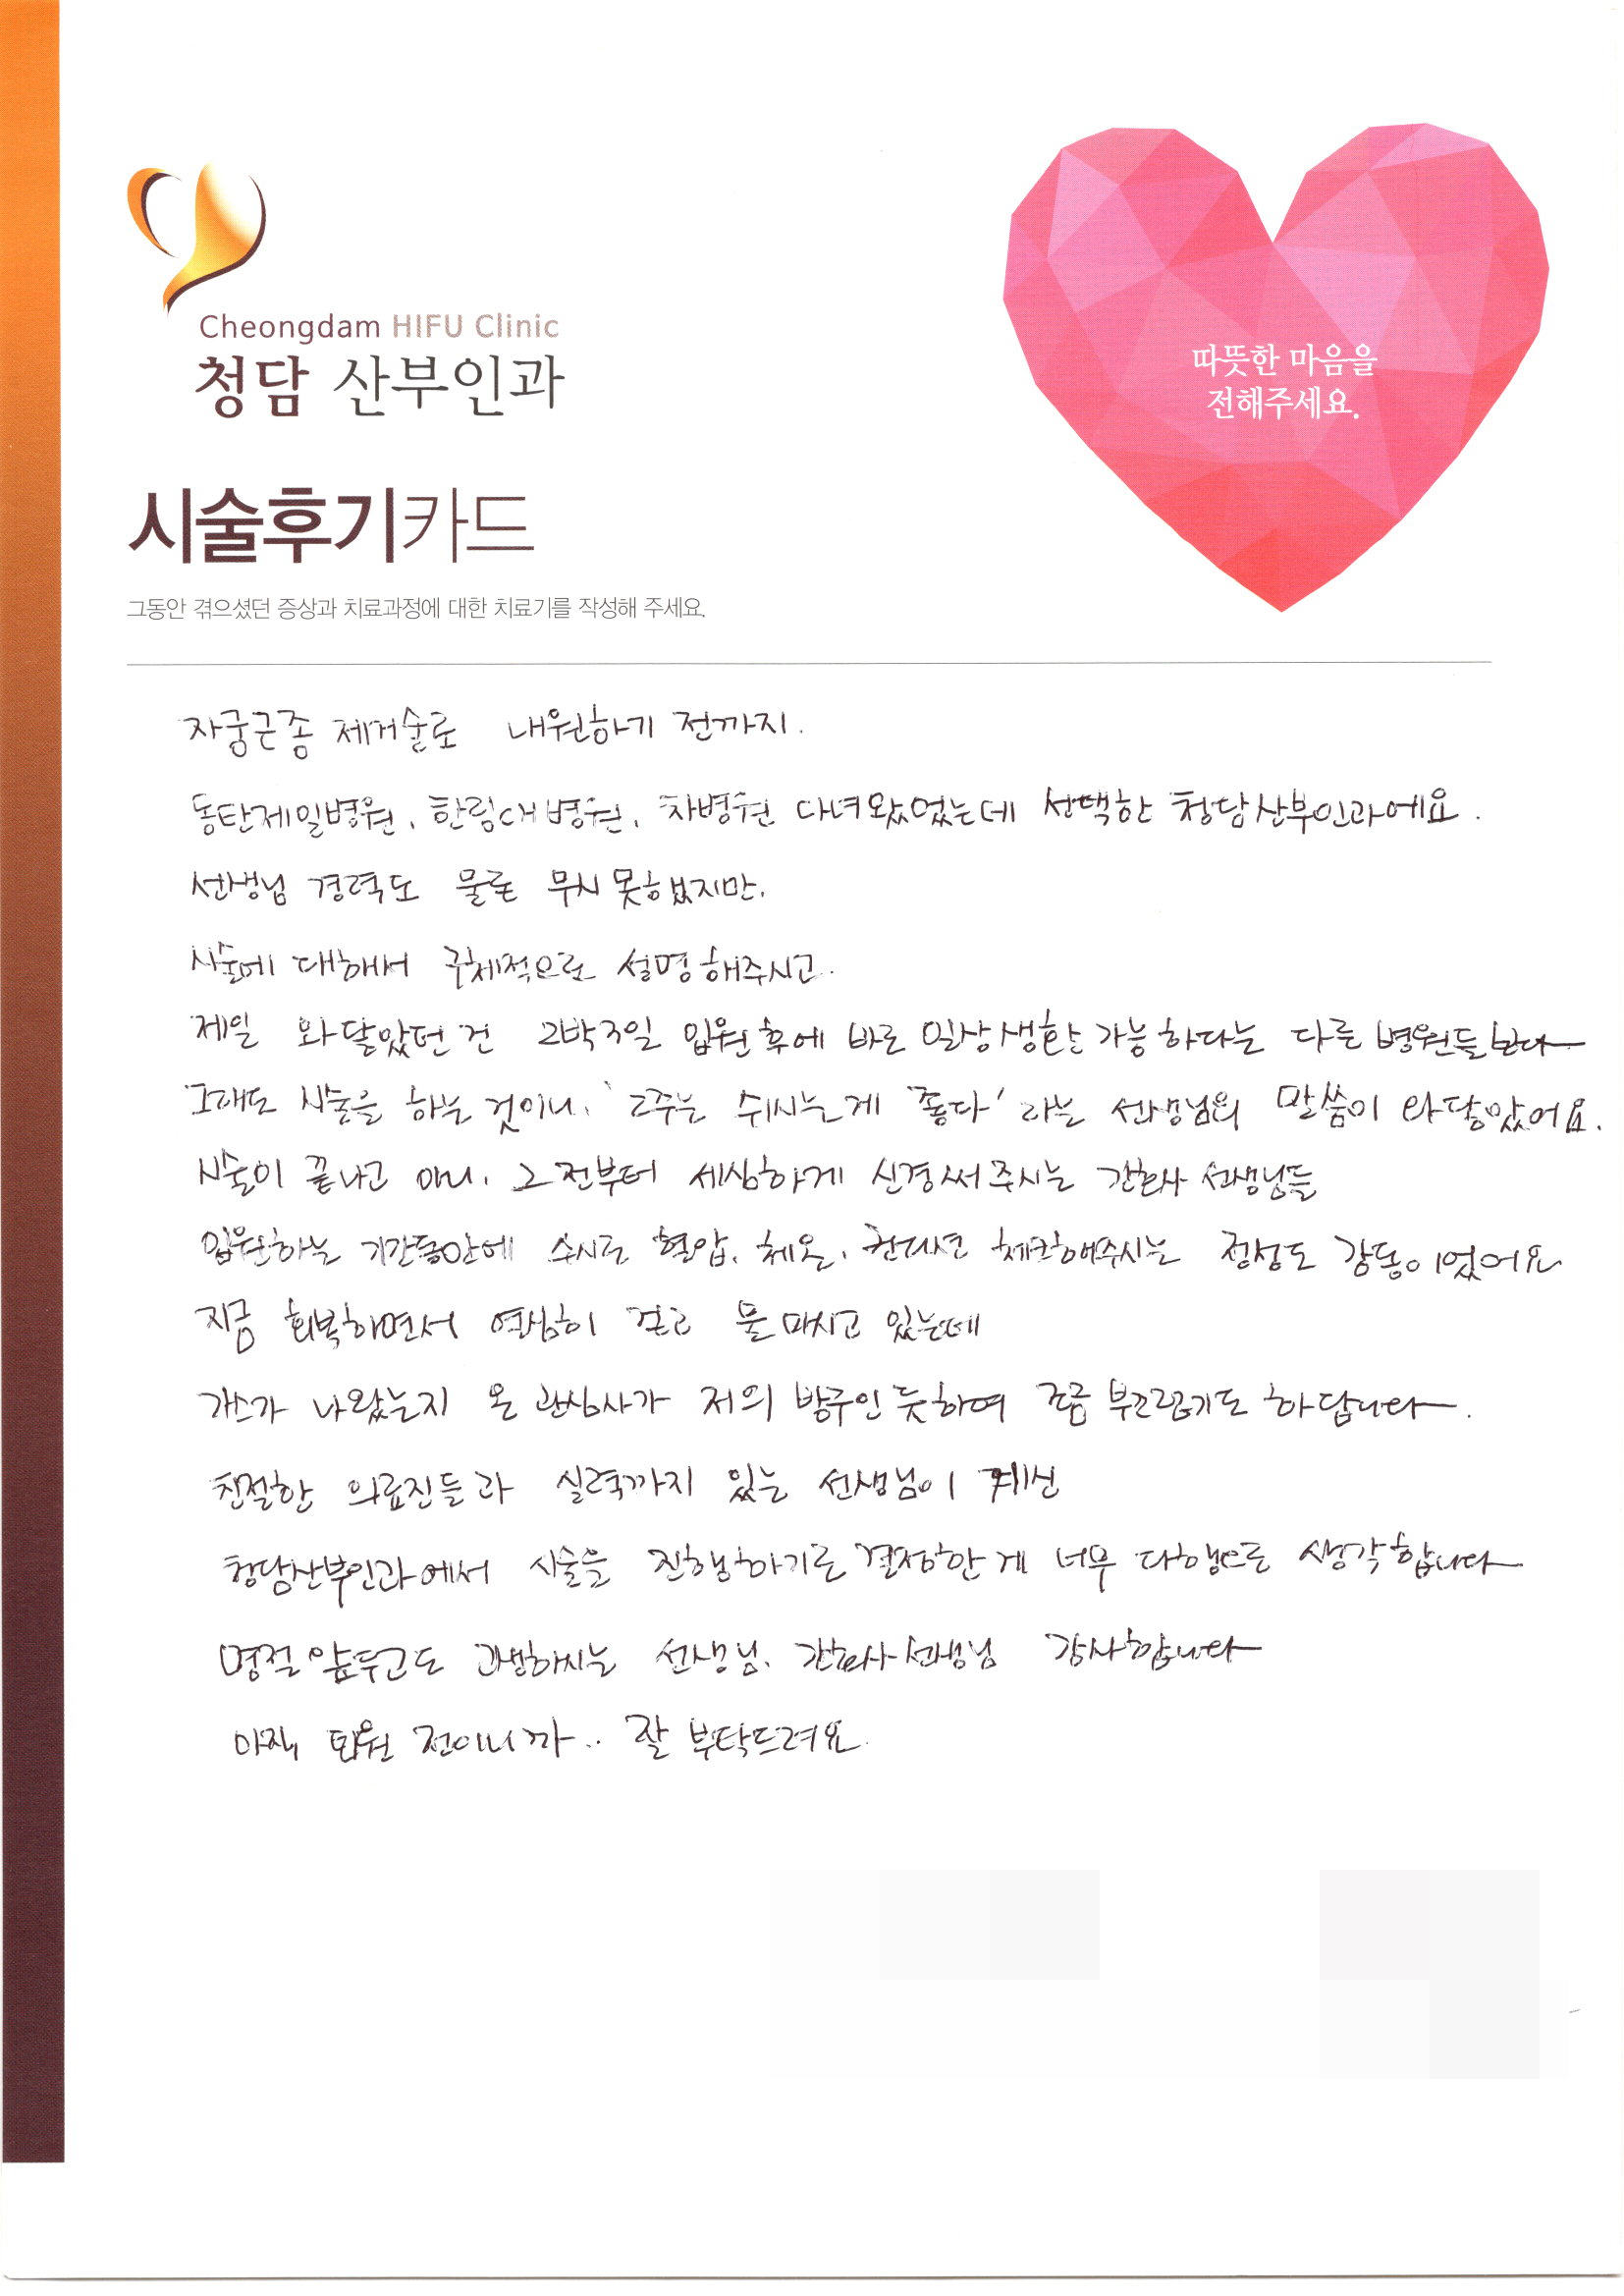 Cheongdam HIFU Clinic
청담 산부인과
따뜻한 마음을
전해주세요.
시술후기카드
그동안 겪으셨던 증상과 치료과정에 대한 치료기를 작성해 주세요.
자궁근종 제거술로 내원하기 전까지.
동탄제일병원, 한림대병원, 차병원 다녀왔었는데 선택한 청담산부인과에요.
선생님 경력도 물론 무시 못하겠지만,
시술에 대해서 구체적으로 설명해주시고.
제일 와닿았던 건 2박3일 입원 후에 바로 일상생활 가능하다는 다른 병원들보다
그래도 시술을 하는 것이니, '2주는 쉬시는게 좋다' 라는 선생님의 말씀이 와닿았어요.
시술이 끝나고 아니, 그 전부터 세심하게 신경써주시는 간호사 선생님들
입원하는 기간동안에 수시로 혈압, 체온, 컨디션 체크해주시는 정성도 감동이었어요
지금 회복하면서 열심히 걷고 물 마시고 있는데
가스가 나왔는지 온 관심사가 저의 방구인 듯하여 조금 부끄럽기도 하답니다.
친절한 의료진들과 실력까지 있는 선생님이 계신
청담산부인과에서 시술을 진행하기로 결정한 게 너무 다행으로 생각합니다
명절 앞두고도 고생하시는 선생님, 간호사 선생님 감사합니다
아직 퇴원 전이니까.. 잘 부탁드려요